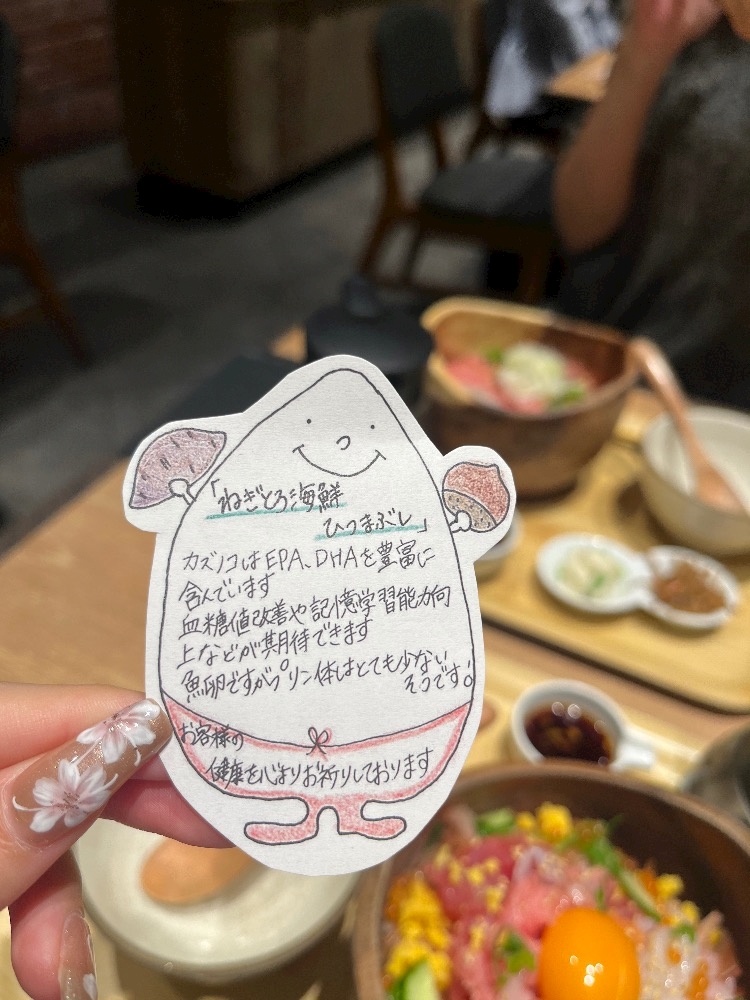 「ねぎとろ海鮮
ひつまぶし」
カズノコはEPA、DHAを豊富に
含んでいます
血糖値改善や記憶学習能力向
上などが期待できます
魚卵ですがプリン体はとても少ない
そうです!
お客様の
健康を心よりお祈りしております